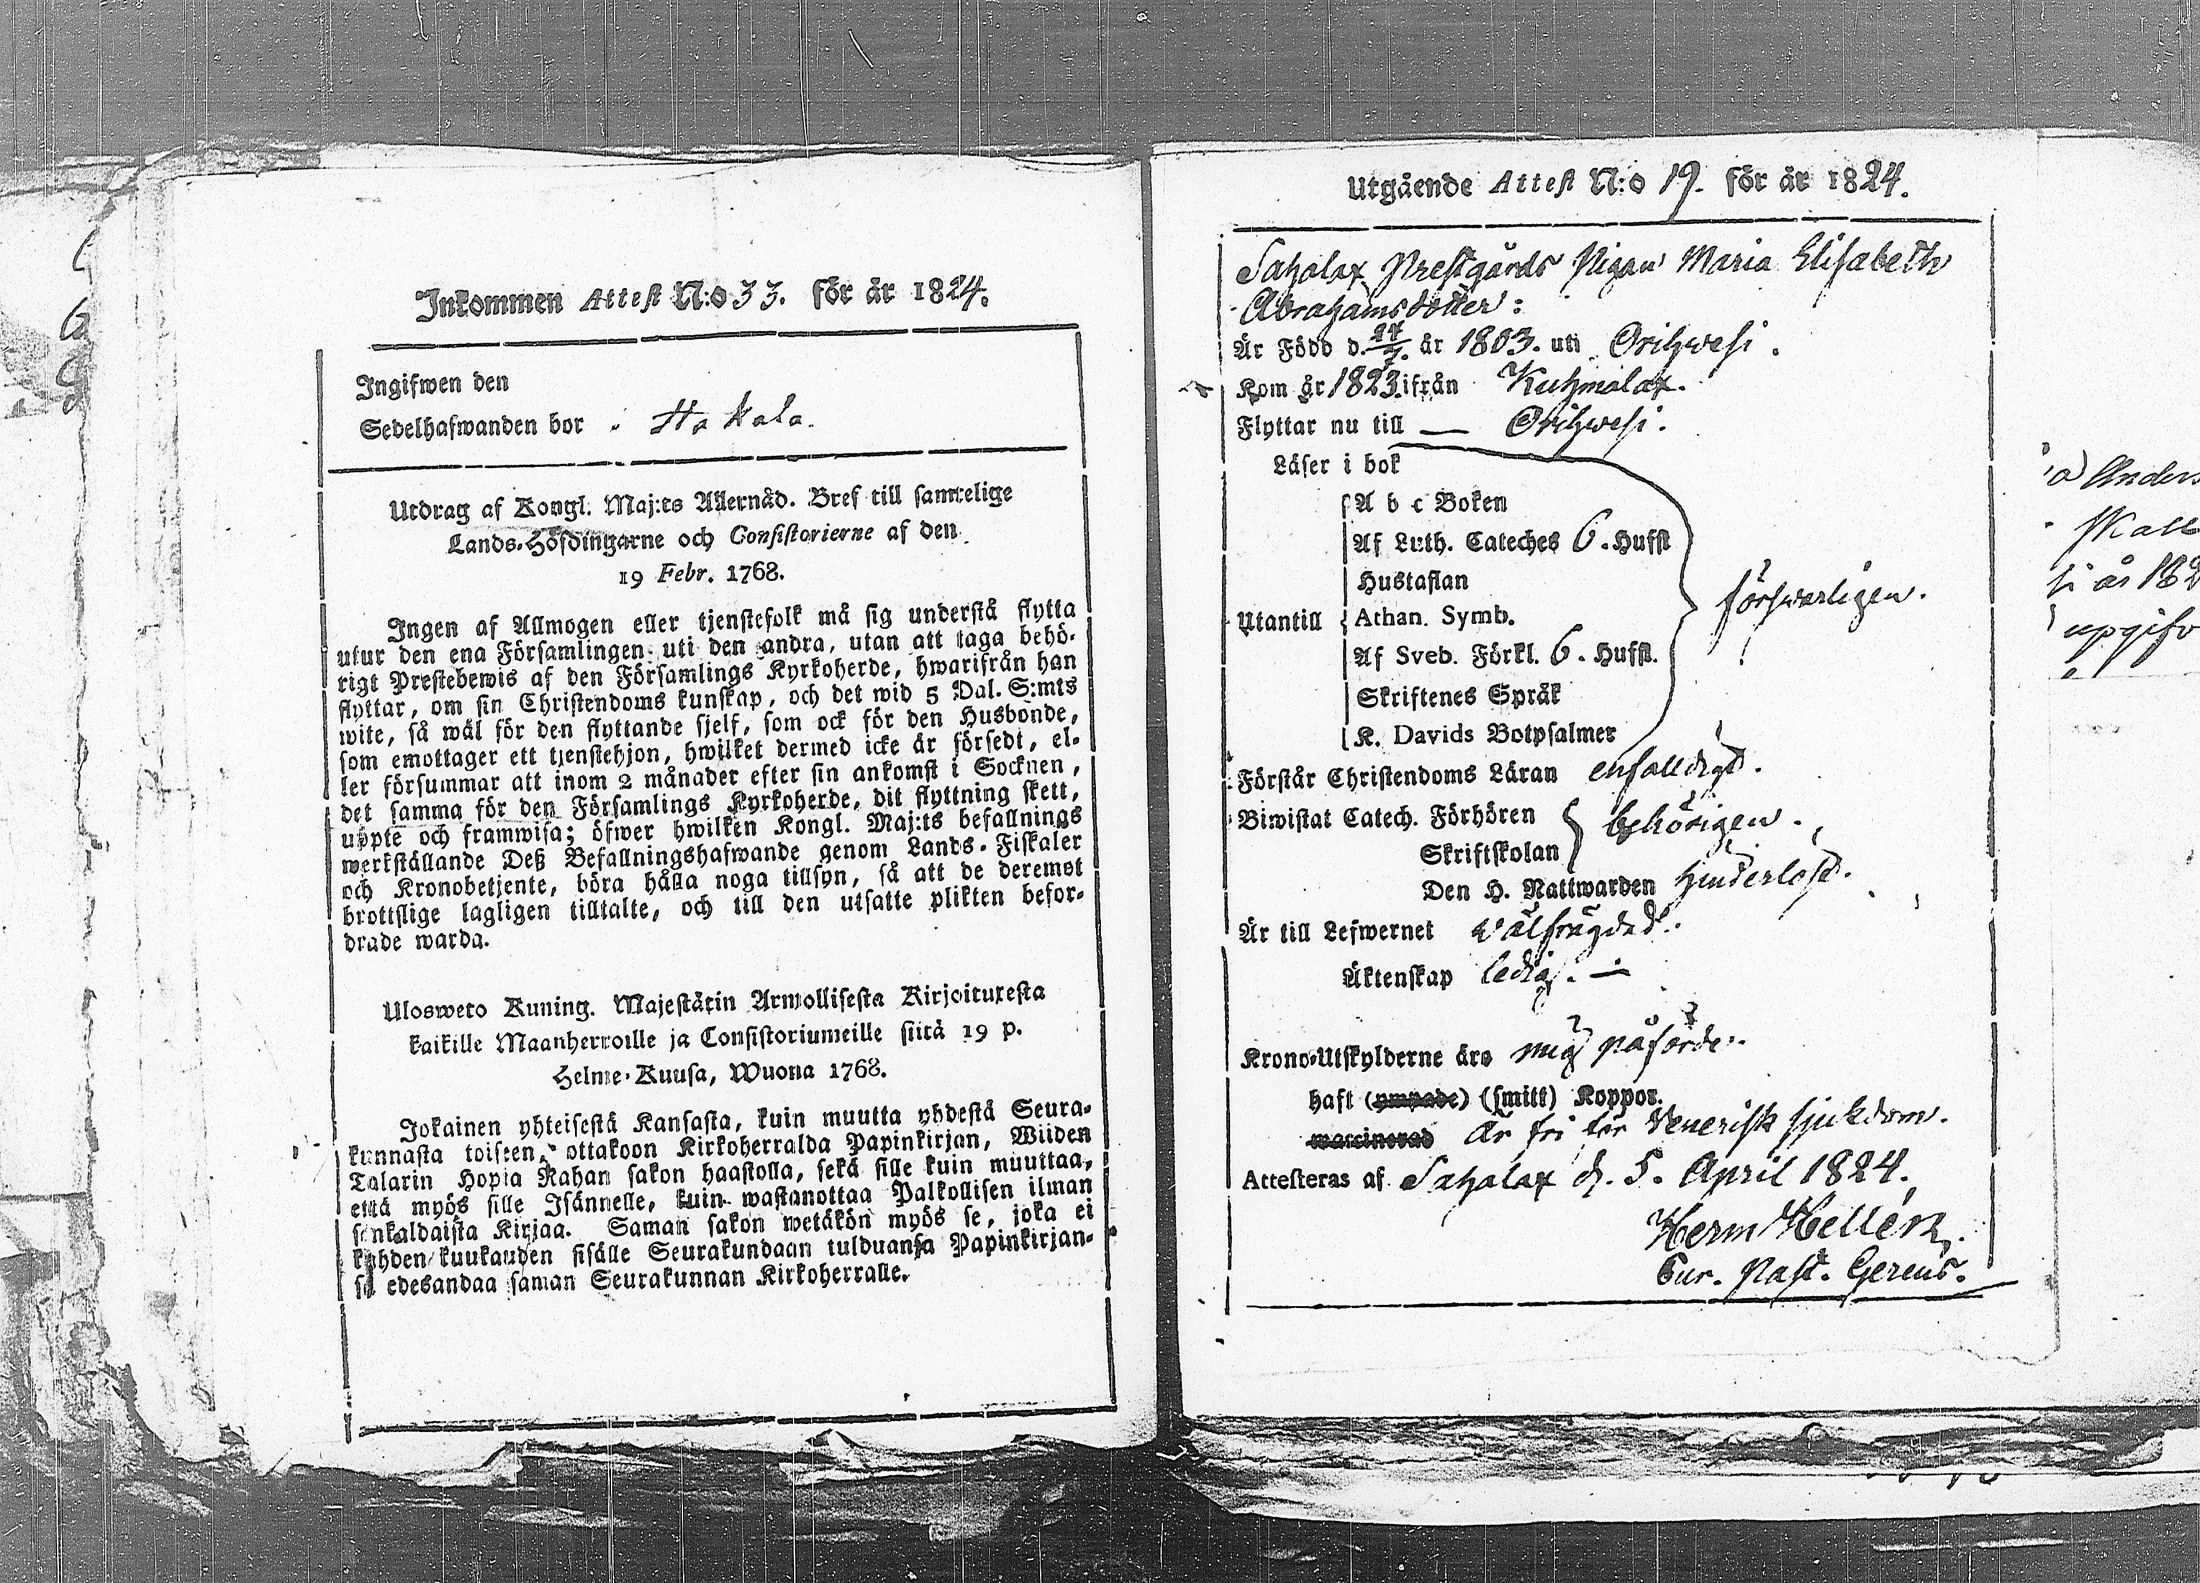 Inkommen Attest N:o 33. för år 1824.
Ingifwen den
Sedelhafwanden bor i Hakala.
Utdrag af Kongl. Maj:ts Allernåd. Bref till samtelige
Lands-Höfdingarne och Consistorierne af den
19 Febr. 1768.
Ingen af Allmogen eller tjenstefolk må sig understå flytta
utur den ena Församlingen uti den andra, utan att taga behö-
rigt Prestebewis af den Församlings Kyrkoherde, hwarifrån han
flyttar, om sin Christendoms kunskap, och det wid 5 Dal. S:mts
wite, så wäl för den flyttande sjelf, som ock för den Husbonde,
som emottager ett tjenstehjon, hwilket dermed icke är försedt, el-
ler försummar att inom 2 månader efter sin ankomst i Socknen,
det samma för den Församlings Kyrkoherde, dit flyttning skett,
uppte och framwisa; öfwer hwilken Kongl. Maj:ts befallnings
werkställande Deß Befallningshafwande genom Lands-Fiskaler
och Kronobetjente, böra hålla noga tillsyn, så att de deremot
brottslige lagligen tilltalte, och till den utsatte plikten befor-
drade warda.
Ulosweto Kuning. Majestätin Armollisesta Kirjoituxesta
kaikille Maanherroille ja Consistoriumeille siitä 19 p.
Helme-Kuusa, Wuona 1768.
Jokainen yhteisestä Kansasta, kuin muutta yhdestä Seura-
kunnasta toiseen, ottakoon Kirkoherralda Papinkirjan, Wiiden
Talarin Hopia Rahan sakon haastolla, sekä sille kuin muuttaa,
että myös sille Isännelle, kuin wastanottaa Palkollisen ilman
senkaldaista Kirjaa. Saman sakon wetäkön myös se, joka ei
kahden kuukauden sisälle Seurakundaan tulduansa Papinkirjan-
sa edesandaa saman Seurakunnan Kirkoherralle.
Utgående Attest N:o 19. för år 1824.
Sahalax Prestgårds Pigan Maria Elisabeth
Abrahamsdotter:
Är Född d. 27/7. år 1803. uti Orihwesi.
Kom år 1823. ifrån Kuhmalax.
Flyttar nu till — Orihwesi.
Läser i bok
A b c Boken
Af Luth. Cateches 6. Hufst
Hustaflan
Utantill Athan. Symb. förswarligen.
Af Sveb. Förkl. 6. Hufst.
Skriftenes Språk
K. Davids Botpsalmer
Förstår Christendoms Läran enfalldigt.
Biwistat Catech. Förhören behörigen.
Skriftskolan
Den H. Nattwarden hinderlöst.
Är till Lefwernet wälfrägdad.
Äktenskap ledig. —
Krono-Utskylderne äro mig påförde.
haft (ympade) (smitt) Koppor.
waccinerad Är fri för Venerisk sjukdom.
Attesteras af Sahalax d. 5. April 1824.
Herm Hellén.
Cur. Past. Gerens.
a Anders
si år 182
upgifv